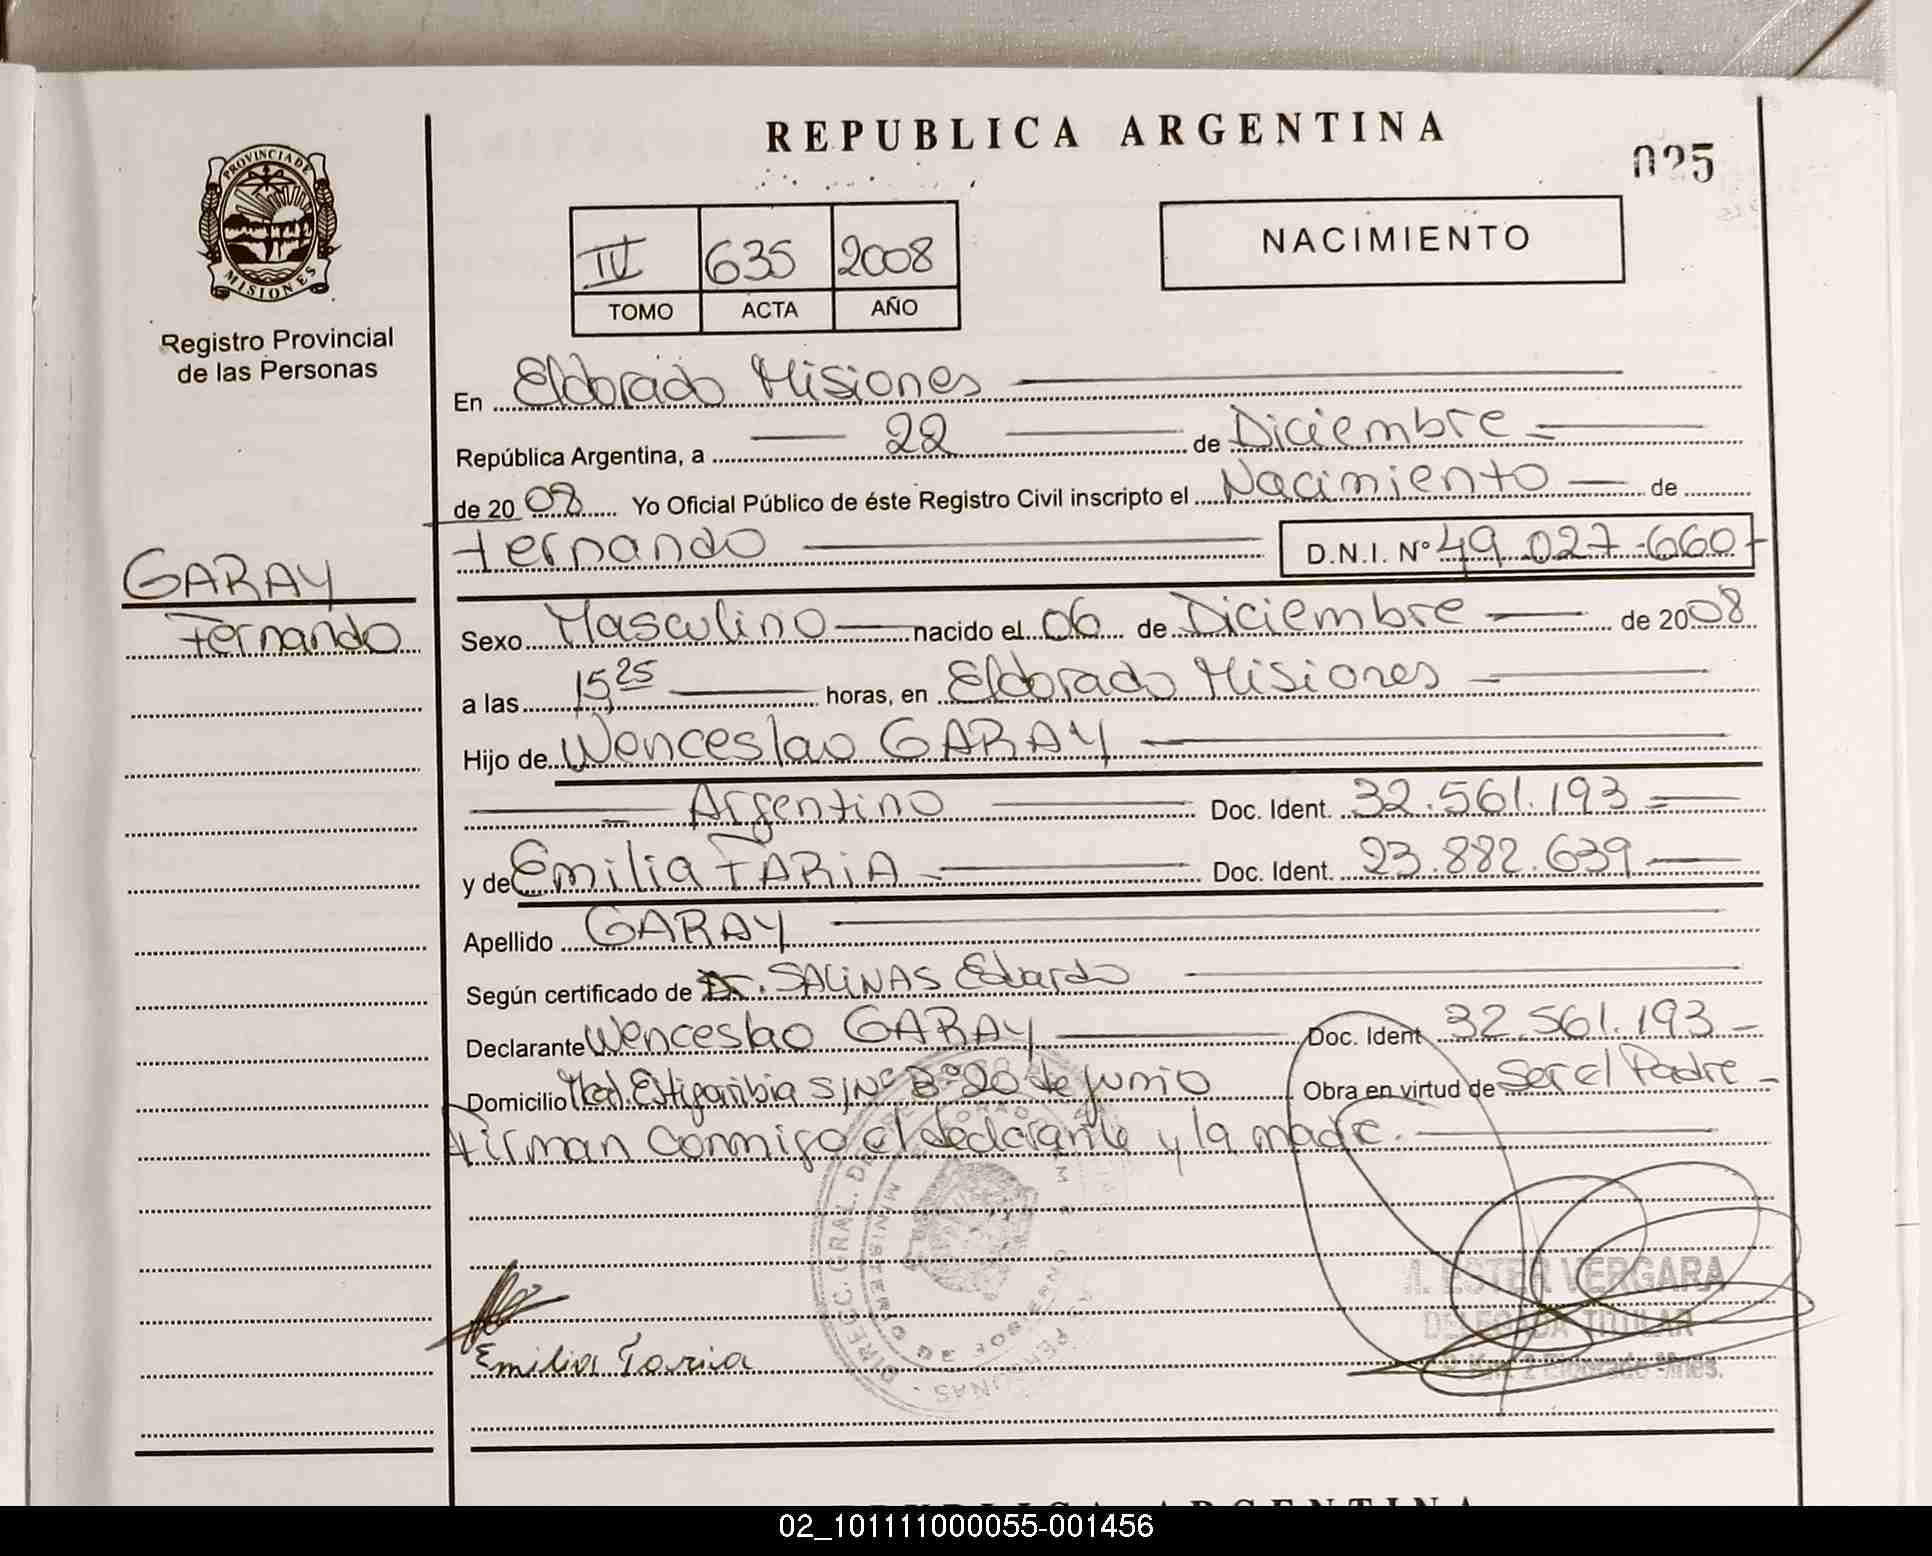 REPUBLICA ARGENTINA
025
PROVINCIA DE
MISIONES
Registro Provincial
de las Personas
IV 635 2008
TOMO ACTA AÑO
NACIMIENTO
En Eldorado Misiones
República Argentina, a 22 de Diciembre
de 2008 Yo Oficial Público de éste Registro Civil inscripto el Nacimiento de
Fernando D.N.I. Nº 49.027.660
GARAY
Fernando
Sexo Masculino nacido el 06 de Diciembre de 2008
a las 15 25 horas, en Eldorado Misiones
Hijo de Wenceslao GARAY
Argentino Doc. Ident. 32.561.193
y de Emilia FARIA Doc. Ident. 23.882.639
Apellido GARAY
Según certificado de Dr. SALINAS Eduardo
Declarante Wenceslao GARAY Doc. Ident 32.561.193
Domicilio Mcal. Estigarribia S/Nº Bº 20 de junio Obra en virtud de Ser el Padre
Firman conmigo el declarante y la madre.
M. ESTER VERGARA
DELEGADA TITULAR
Km. 2 Eldorado Mnes.
Emilia Faria
REPUBLICA ARGENTINA
02_101111000055-001456